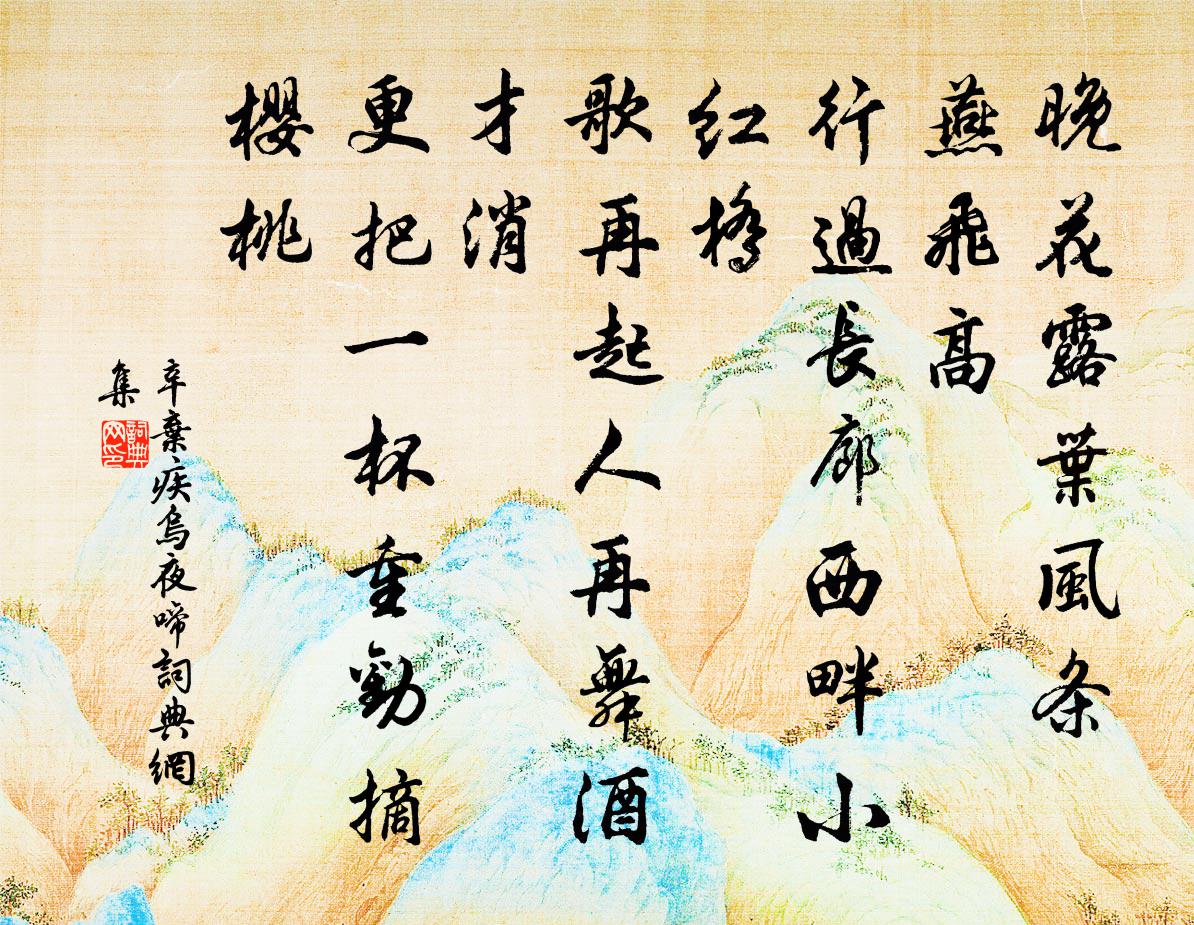 晚花露葉風条
燕飛高
行過長廊西畔小
红橋
歌再起人再舞酒
才消
更把一杯重勸摘
櫻桃
辛棄疾烏夜啼詞典網
集
詞典
网印